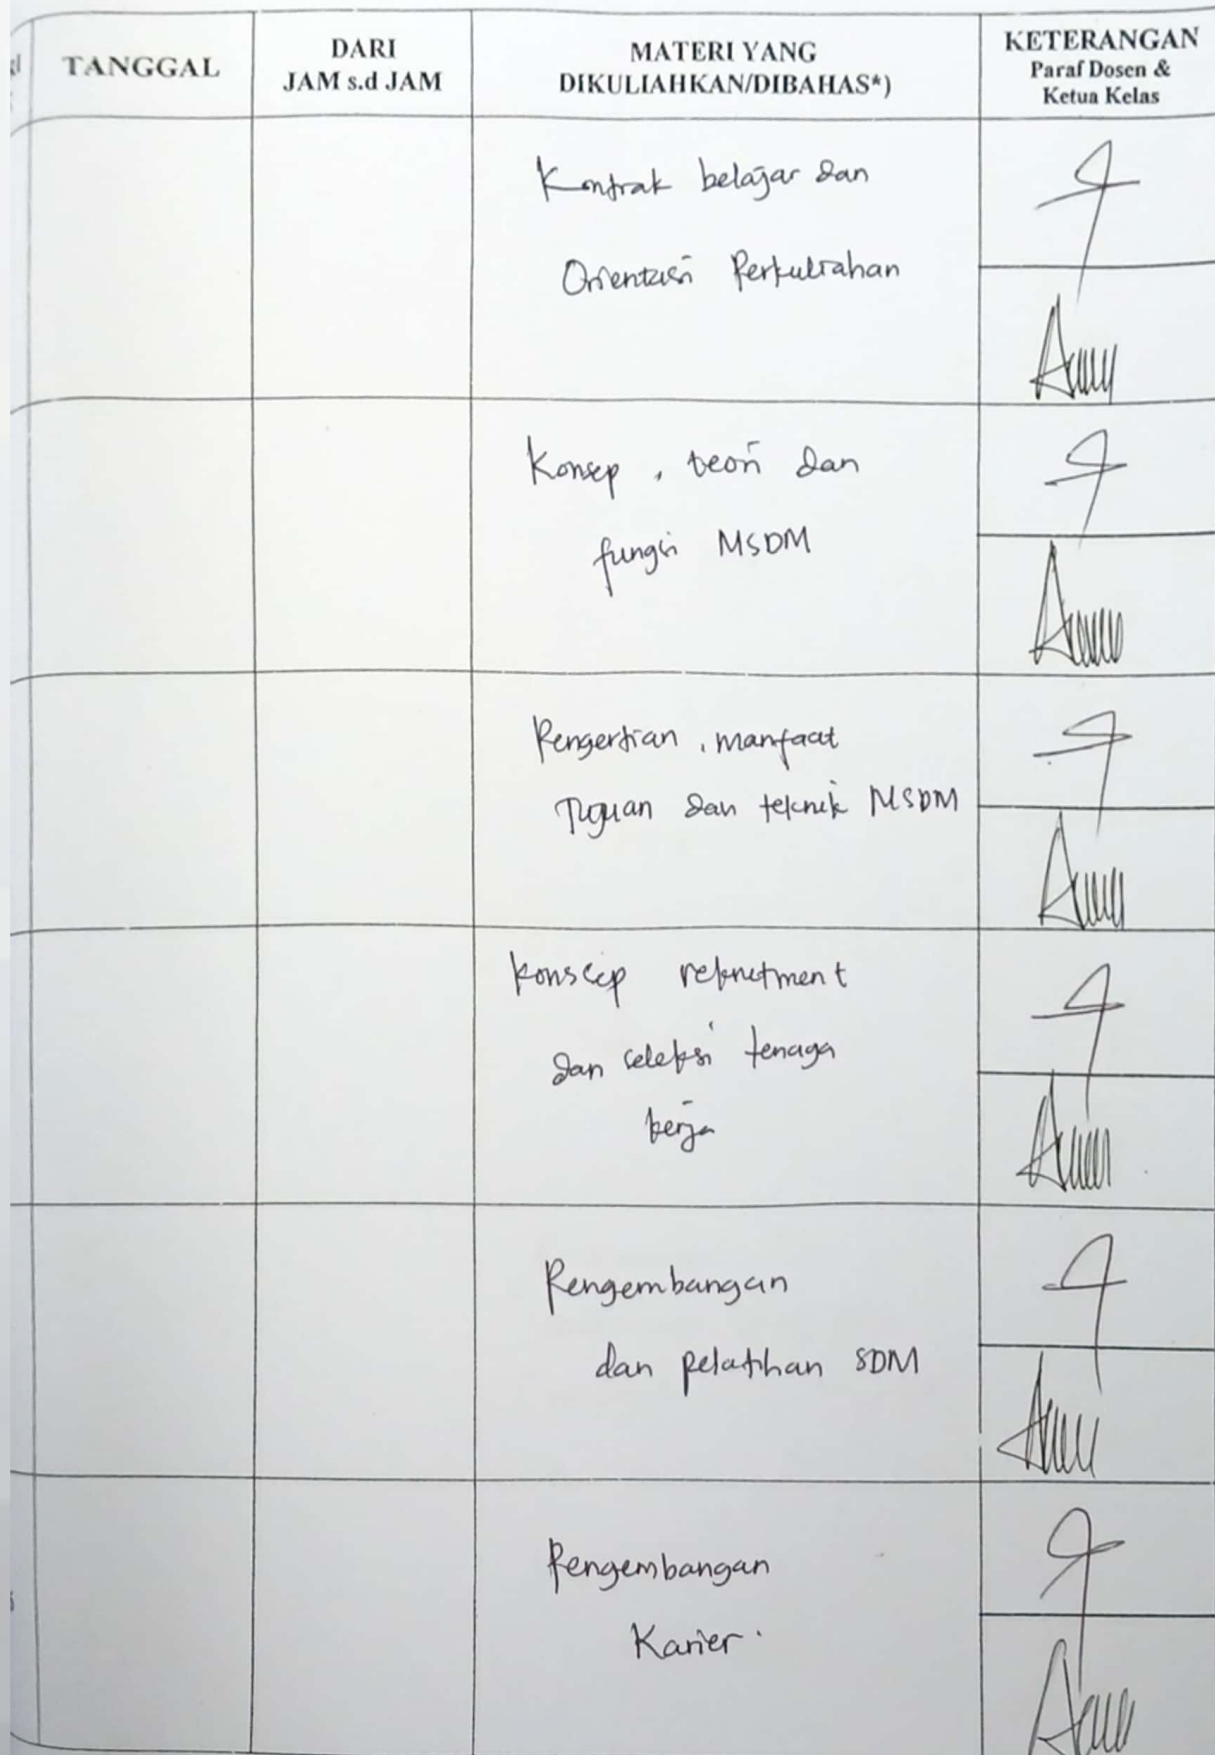 TANGGAL
DARI
JAM s.d JAM
MATERI YANG
DIKULIAHKAN/DIBAHAS*)
KETERANGAN
Paraf Dosen &
Ketua Kelas
Kontrak belajar dan
Orientasi Perkuliahan
Konsep, teori dan
fungsi MSDM
Pengertian, manfaat
Tujuan dan teknik MSDM
Konsep rekrutment
dan seleksi tenaga
kerja
Pengembangan
dan pelatihan SDM
Pengembangan
Karier.